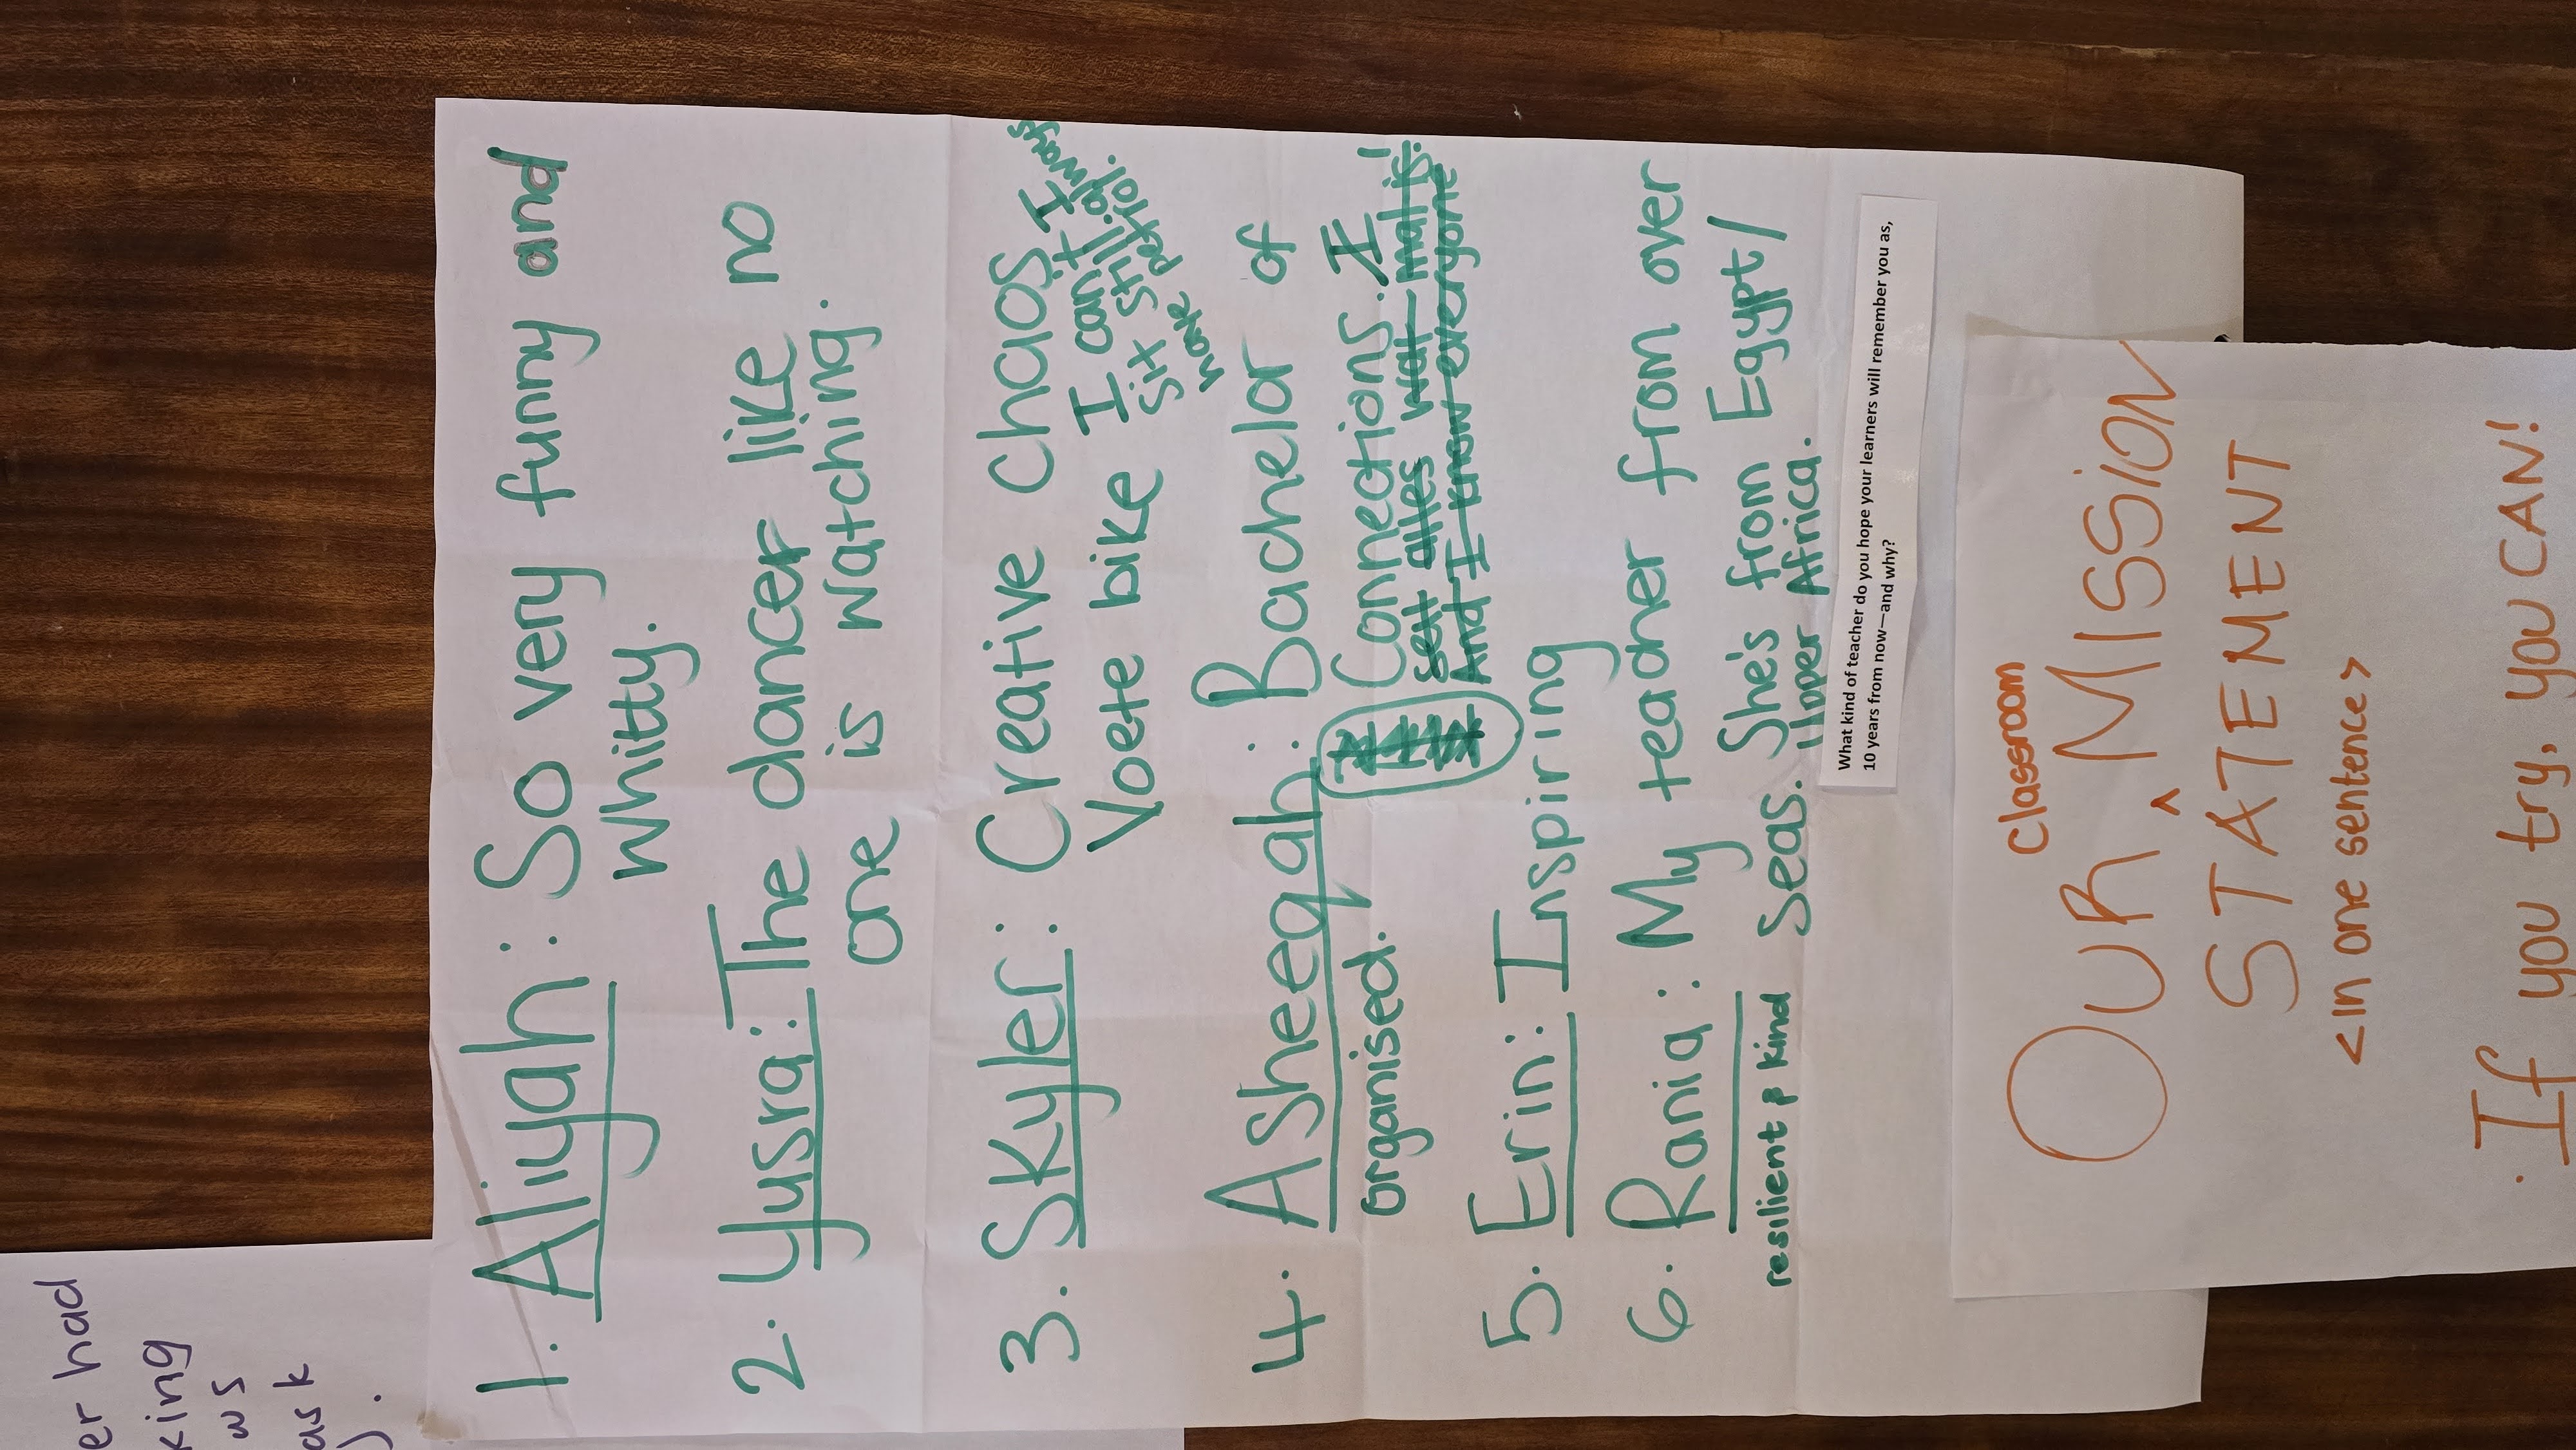 er had
king
ws
ask
1. Aliyah: So very funny and
Whitty.
2. Yusra: The dancer like no
one is watching.
3. Skyler: Creative Chaos. I
Voete bike I can't. I always
six still.
have
4. Asheeqah: Bachelor of
organised. Connections. I
sell alles wat mal is!
And I know everyone
5. Erin: Inspiring
6. Rania: My teacher from over
resilient & kind Seas. She's from Egypt/
Upper Africa.
What kind of teacher do you hope your learners will remember you as,
10 years from now—and why?
Classroom
OUR ^ MISSION
STATEMENT
<In one sentence>
. If you try, you CAN!